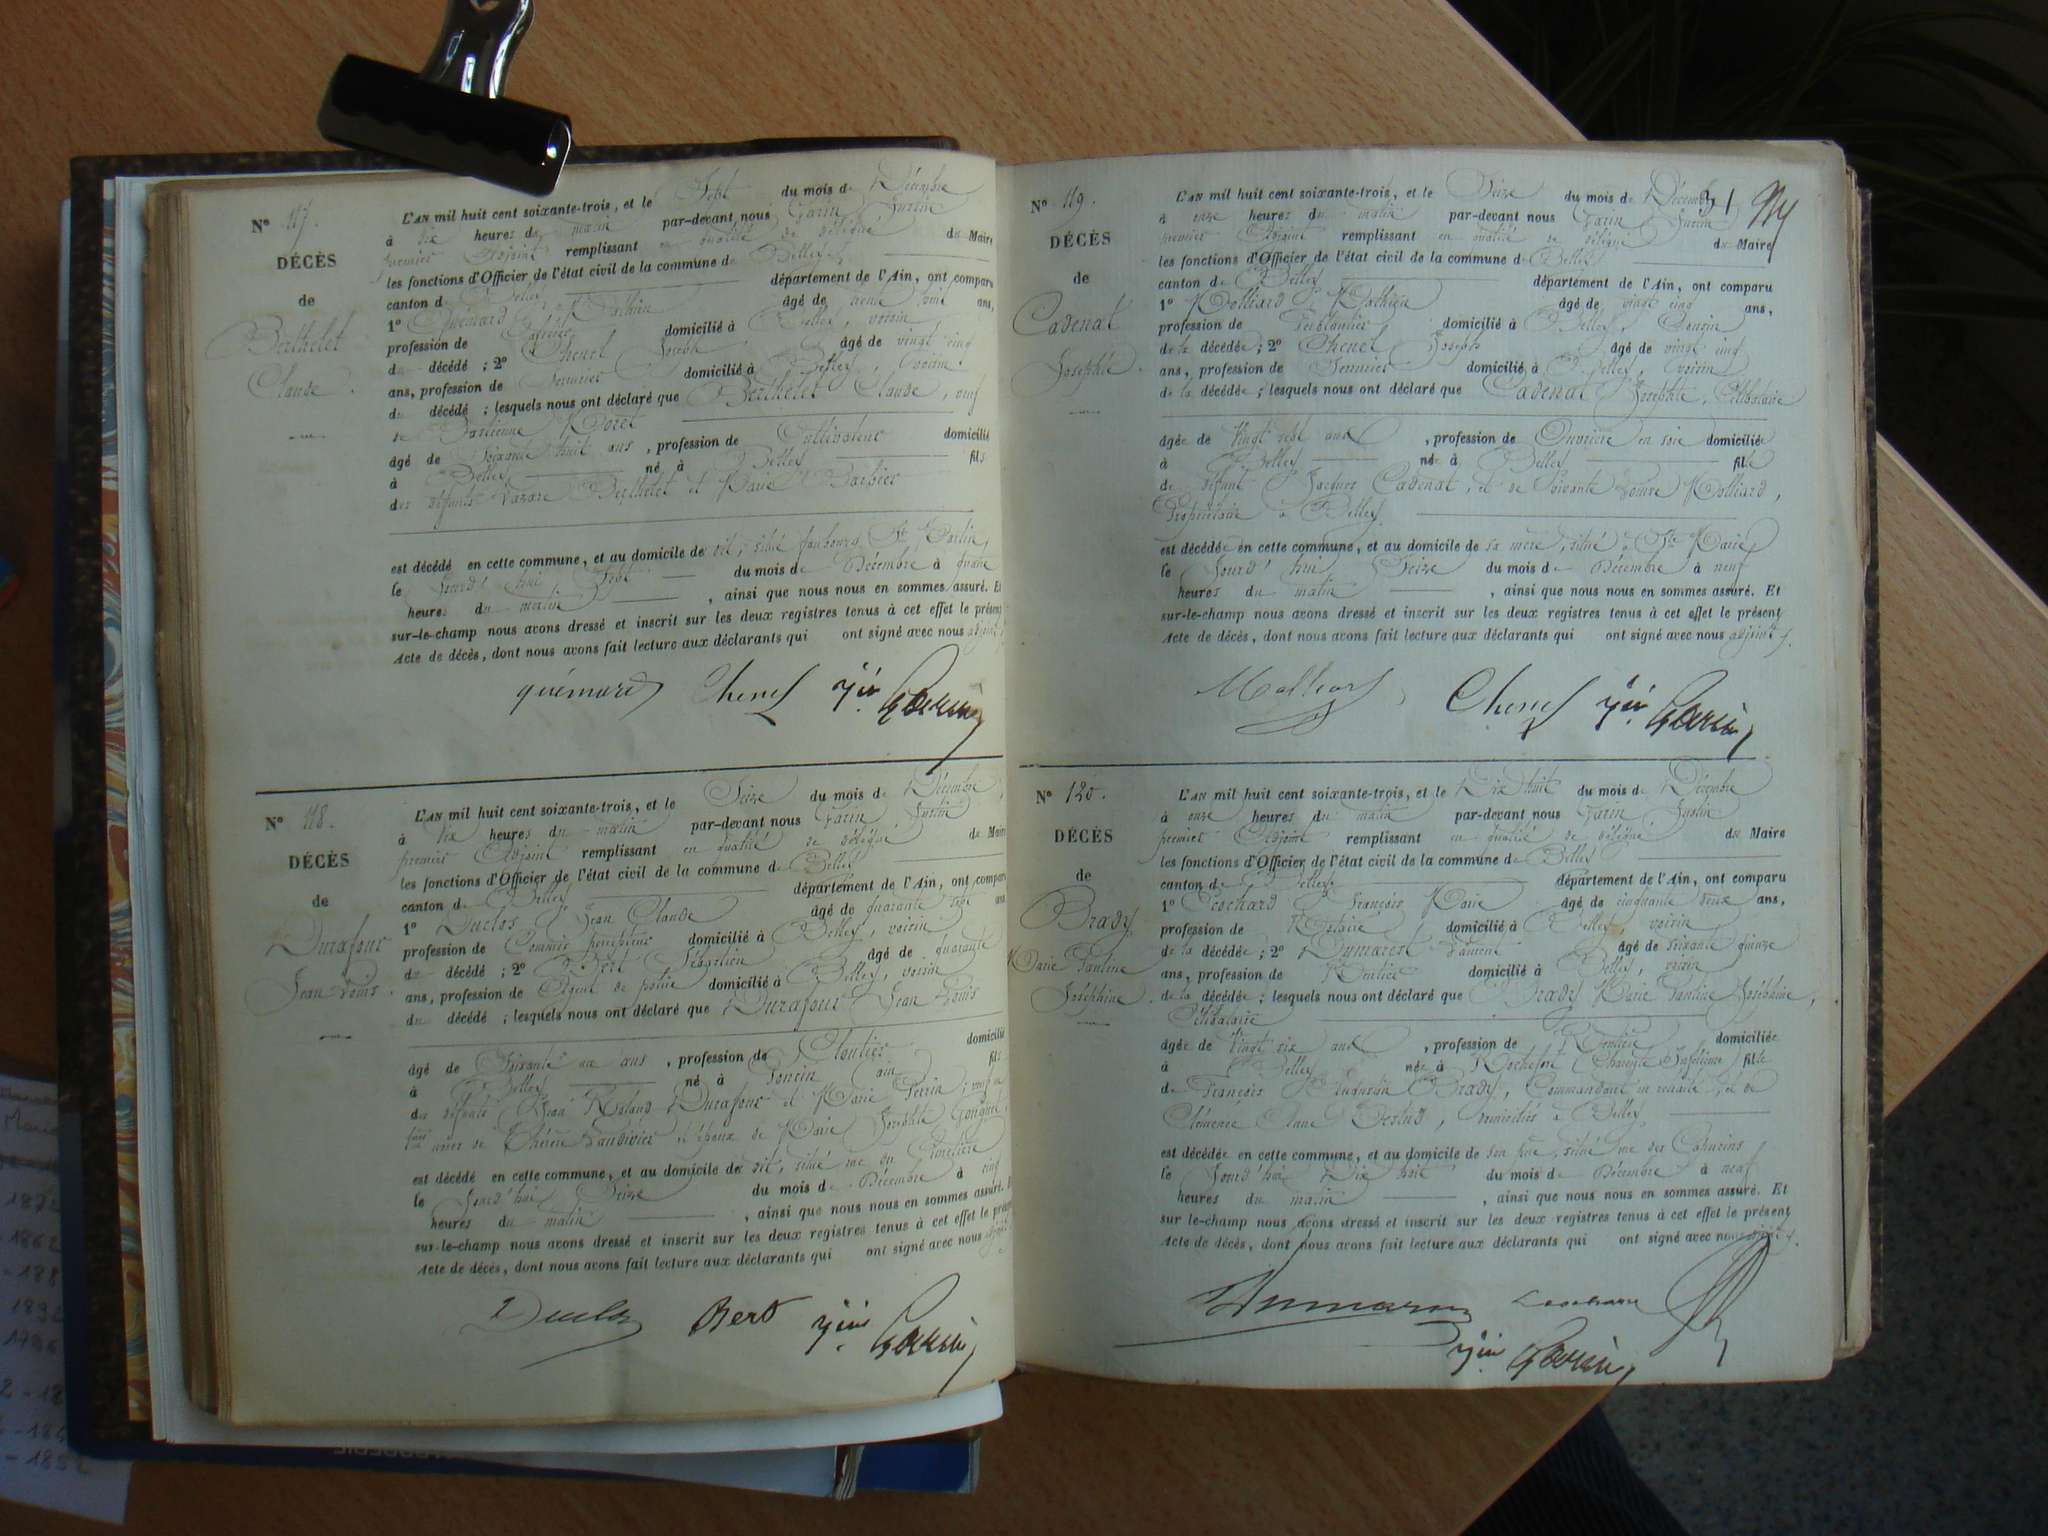 N° 117.
DÉCÈS
de
Berthelet
Claude.
L'AN mil huit cent soixante-trois, et le Sept du mois de Décembre
à dix heures du matin par-devant nous Garin Justin
premier Adjoint remplissant en qualité de délégué du Maire
les fonctions d'Officier de l'état civil de la commune de Belley
canton de Belley département de l'Ain, ont comparu
1° Quémard Mathieu âgé de trente huit ans,
profession de domicilié à Belley, voisin
du décédé ; 2° Chenel Joseph âgé de vingt cinq
ans, profession de domicilié à Belley, voisin
du décédé ; lesquels nous ont déclaré que Berthelet Claude, veuf
de Parienne Moret
âgé de Soixante huit ans, profession de Cultivateur domicilié
à Belley né à Belley fils
des défunts Lazare Berthelet et Marie Barbier
est décédé en cette commune, et au domicile de dit, situé faubourg St Martin,
le Jourd'hui Sept du mois de Décembre à quatre
heures du matin , ainsi que nous nous en sommes assuré. Et
sur-le-champ nous avons dressé et inscrit sur les deux registres tenus à cet effet le présent
Acte de décès, dont nous avons fait lecture aux déclarants qui ont signé avec nous adjoint
quémard Chenel Jin Garin
N° 118.
DÉCÈS
de
Durafour
Jean Louis.
L'AN mil huit cent soixante-trois, et le Seize du mois de Décembre,
à dix heures du matin par-devant nous Garin Justin
premier Adjoint remplissant en qualité de délégué du Maire
les fonctions d'Officier de l'état civil de la commune de Belley
canton de Belley département de l'Ain, ont comparu
1° Duclos Jean Claude âgé de quarante sept ans
profession de Commis percepteur domicilié à Belley, voisin
du décédé ; 2° Bert Sébastien âgé de quarante
ans, profession de Agent de police domicilié à Belley, voisin
du décédé ; lesquels nous ont déclaré que Durafour Jean Louis
âgé de Soixante un ans, profession de Cloutier domicilié
à Belley né à Poncin ain fils
des défunts Jean Roland Durafour et Marie Perrin ; veuf en
noces de Thérèse et époux de Marie Josephte
est décédé en cette commune, et au domicile de dit, situé rue du Cimetière
le Jourd'hui Seize du mois de Décembre à cinq
heures du matin , ainsi que nous nous en sommes assuré. E
sur-le-champ nous avons dressé et inscrit sur les deux registres tenus à cet effet le prése
Acte de décès, dont nous avons fait lecture aux déclarants qui ont signé avec nous
Duclos Bert Jin Garin
31
N° 119.
DÉCÈS
de
Cadenat
Josephte.
L'AN mil huit cent soixante-trois, et le Seize du mois de Décembre
à onze heures du matin par-devant nous Garin Justin
premier Adjoint remplissant en qualité de délégué du Maire
les fonctions d'Officier de l'état civil de la commune de Belley
canton de Belley département de l'Ain, ont comparu
1° Molliard Mathieu âgé de vingt cinq ans,
profession de Ferblantier domicilié à Belley, Cousin
de la décédée ; 2° Chenel Joseph âgé de vingt cinq
ans, profession de domicilié à Belley, voisin
de la décédée ; lesquels nous ont déclaré que Cadenat Josephte, Célibataire
âgée de Vingt sept ans, profession de Ouvrière en soie domiciliée
à Belley née à Belley fille
de défunt Jacques Cadenat, et de vivante Molliard,
Propriétaire à Belley
est décédée en cette commune, et au domicile de sa mère, situé à Ste Marie
le Jourd'hui Seize du mois de Décembre à neuf
heures du matin , ainsi que nous nous en sommes assuré. Et
sur-le-champ nous avons dressé et inscrit sur les deux registres tenus à cet effet le présent
Acte de décès, dont nous avons fait lecture aux déclarants qui ont signé avec nous adjoint
Molliard Chenel Jin Garin
N° 120.
DÉCÈS
de
Brady
Marie Pauline
Joséphine.
L'AN mil huit cent soixante-trois, et le Dix huit du mois de Décembre
à onze heures du matin par-devant nous Garin Justin
premier Adjoint remplissant en qualité de délégué du Maire
les fonctions d'Officier de l'état civil de la commune de Belley
canton de Belley département de l'Ain, ont comparu
1° Cochard François Marie âgé de cinquante deux ans,
profession de Notaire domicilié à Belley, voisin
de la décédée ; 2° Dumarest Laurent âgé de soixante quinze
ans, profession de Rentier domicilié à Belley, voisin
de la décédée ; lesquels nous ont déclaré que Brady Marie Pauline Joséphine,
Célibataire
âgée de Vingt six ans, profession de Rentière domiciliée
à Belley née à Rochefort (Charente Inférieure) fille
de François Augustin Brady, Commandant en retraite, et de
Clémence domiciliés à Belley,
est décédée en cette commune, et au domicile de son père, situé rue des Capucins
le Jourd'hui Dix huit du mois de Décembre à neuf
heures du matin , ainsi que nous nous en sommes assuré. Et
sur-le-champ nous avons dressé et inscrit sur les deux registres tenus à cet effet le présent
Acte de décès, dont nous avons fait lecture aux déclarants qui ont signé avec nous adjoint
Dumarest Cochard
Jin Garin